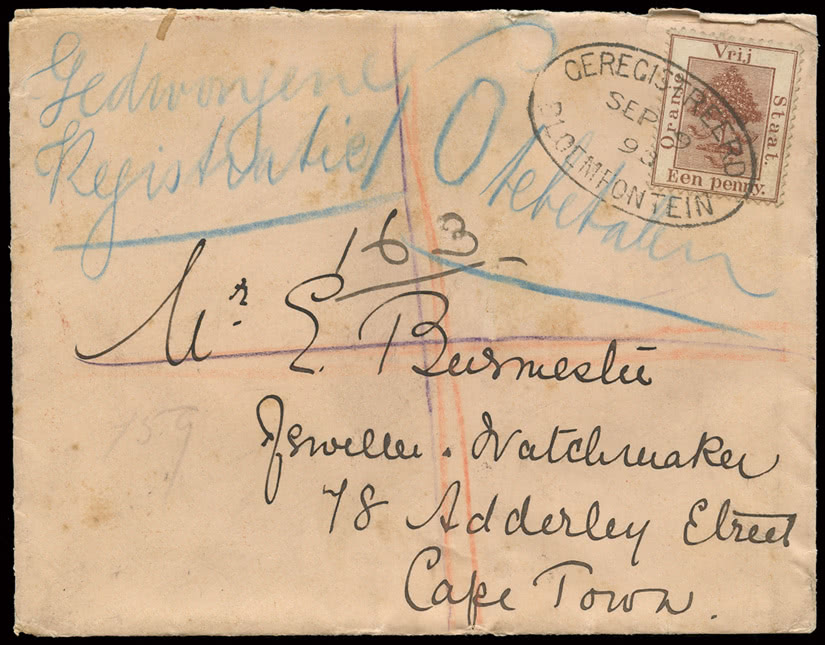 Gedwongene
Registratie / O
te betalen
GEREGISTREERD
SEP 9
93
BLOEMFONTEIN
Oranje Vrij Staat.
Een penny.
163 -
Mr. E. Burmester
Jeweller. Watchmaker
78 Adderley Street
Cape Town.
159